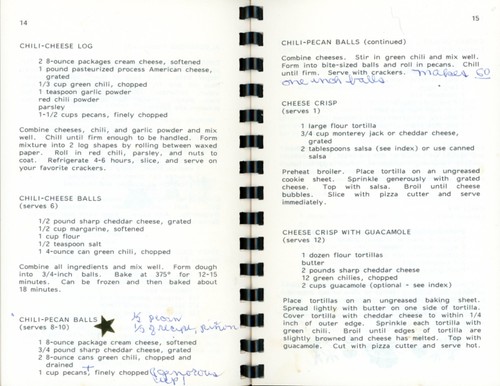 14
CHILI-CHEESE LOG
2 8-ounce packages cream cheese, softened
1 pound pasteurized process American cheese,
grated
1/3 cup green chili, chopped
1 teaspoon garlic powder
red chili powder
parsley
1-1/2 cups pecans, finely chopped
Combine cheeses, chili, and garlic powder and mix
well. Chill until firm enough to be handled. Form
mixture into 2 log shapes by rolling between waxed
paper. Roll in red chili, parsley, and nuts to
coat. Refrigerate 4-6 hours, slice, and serve on
your favorite crackers.
CHILI-CHEESE BALLS
(serves 6)
1/2 pound sharp cheddar cheese, grated
1/2 cup margarine, softened
1 cup flour
1/2 teaspoon salt
1 4-ounce can green chili, chopped
Combine all ingredients and mix well. Form dough
into 3/4-inch balls. Bake at 375° for 12-15
minutes. Can be frozen and then baked about
18 minutes.
CHILI-PECAN BALLS
(serves 8-10)
1 8-ounce package cream cheese, softened
3/4 pound sharp cheddar cheese, grated
2 8-ounce cans green chili, chopped and
drained
1 cup pecans, finely chopped (generous
cup!)
15
CHILI-PECAN BALLS (continued)
Combine cheeses. Stir in green chili and mix well.
Form into bite-sized balls and roll in pecans. Chill
until firm. Serve with crackers. makes 60
one inch balls
CHEESE CRISP
(serves 1)
1 large flour tortilla
3/4 cup monterey jack or cheddar cheese,
grated
2 tablespoons salsa (see index) or use canned
salsa
Preheat broiler. Place tortilla on an ungreased
cookie sheet. Sprinkle generously with grated
cheese. Top with salsa. Broil until cheese
bubbles. Slice with pizza cutter and serve
immediately.
CHEESE CRISP WITH GUACAMOLE
(serves 12)
1 dozen flour tortillas
butter
2 pounds sharp cheddar cheese
10 green chilies, chopped
2 cups guacamole (optional - see index)
Place tortillas on an ungreased baking sheet.
Spread lightly with butter on one side of tortilla.
Cover tortilla with cheddar cheese to within 1/4
inch of outer edge. Sprinkle each tortilla with
green chili. Broil until edges of tortilla are
slightly browned and cheese has melted. Top with
guacamole. Cut with pizza cutter and serve hot.